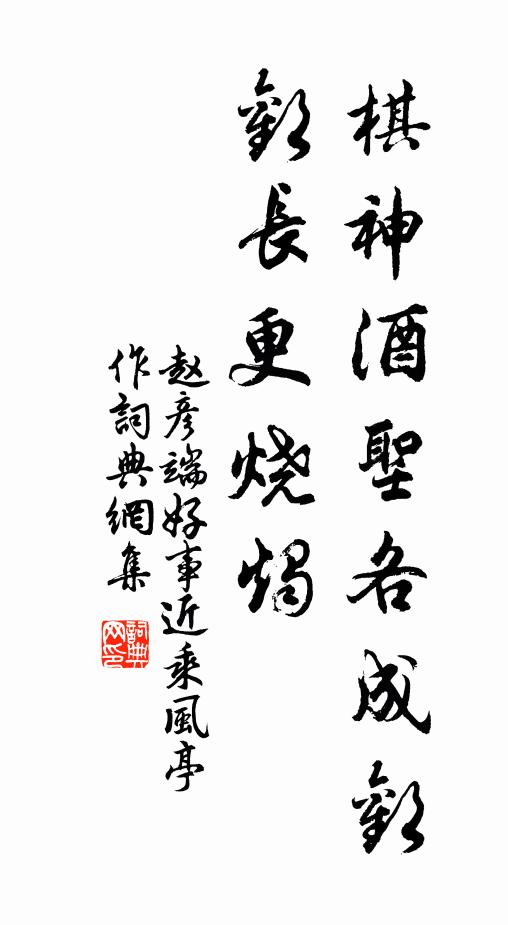 棋神酒聖各成歡
歡長更燒燭
赵彥端好事近乘風亭
作詞典網集
詞典
网印